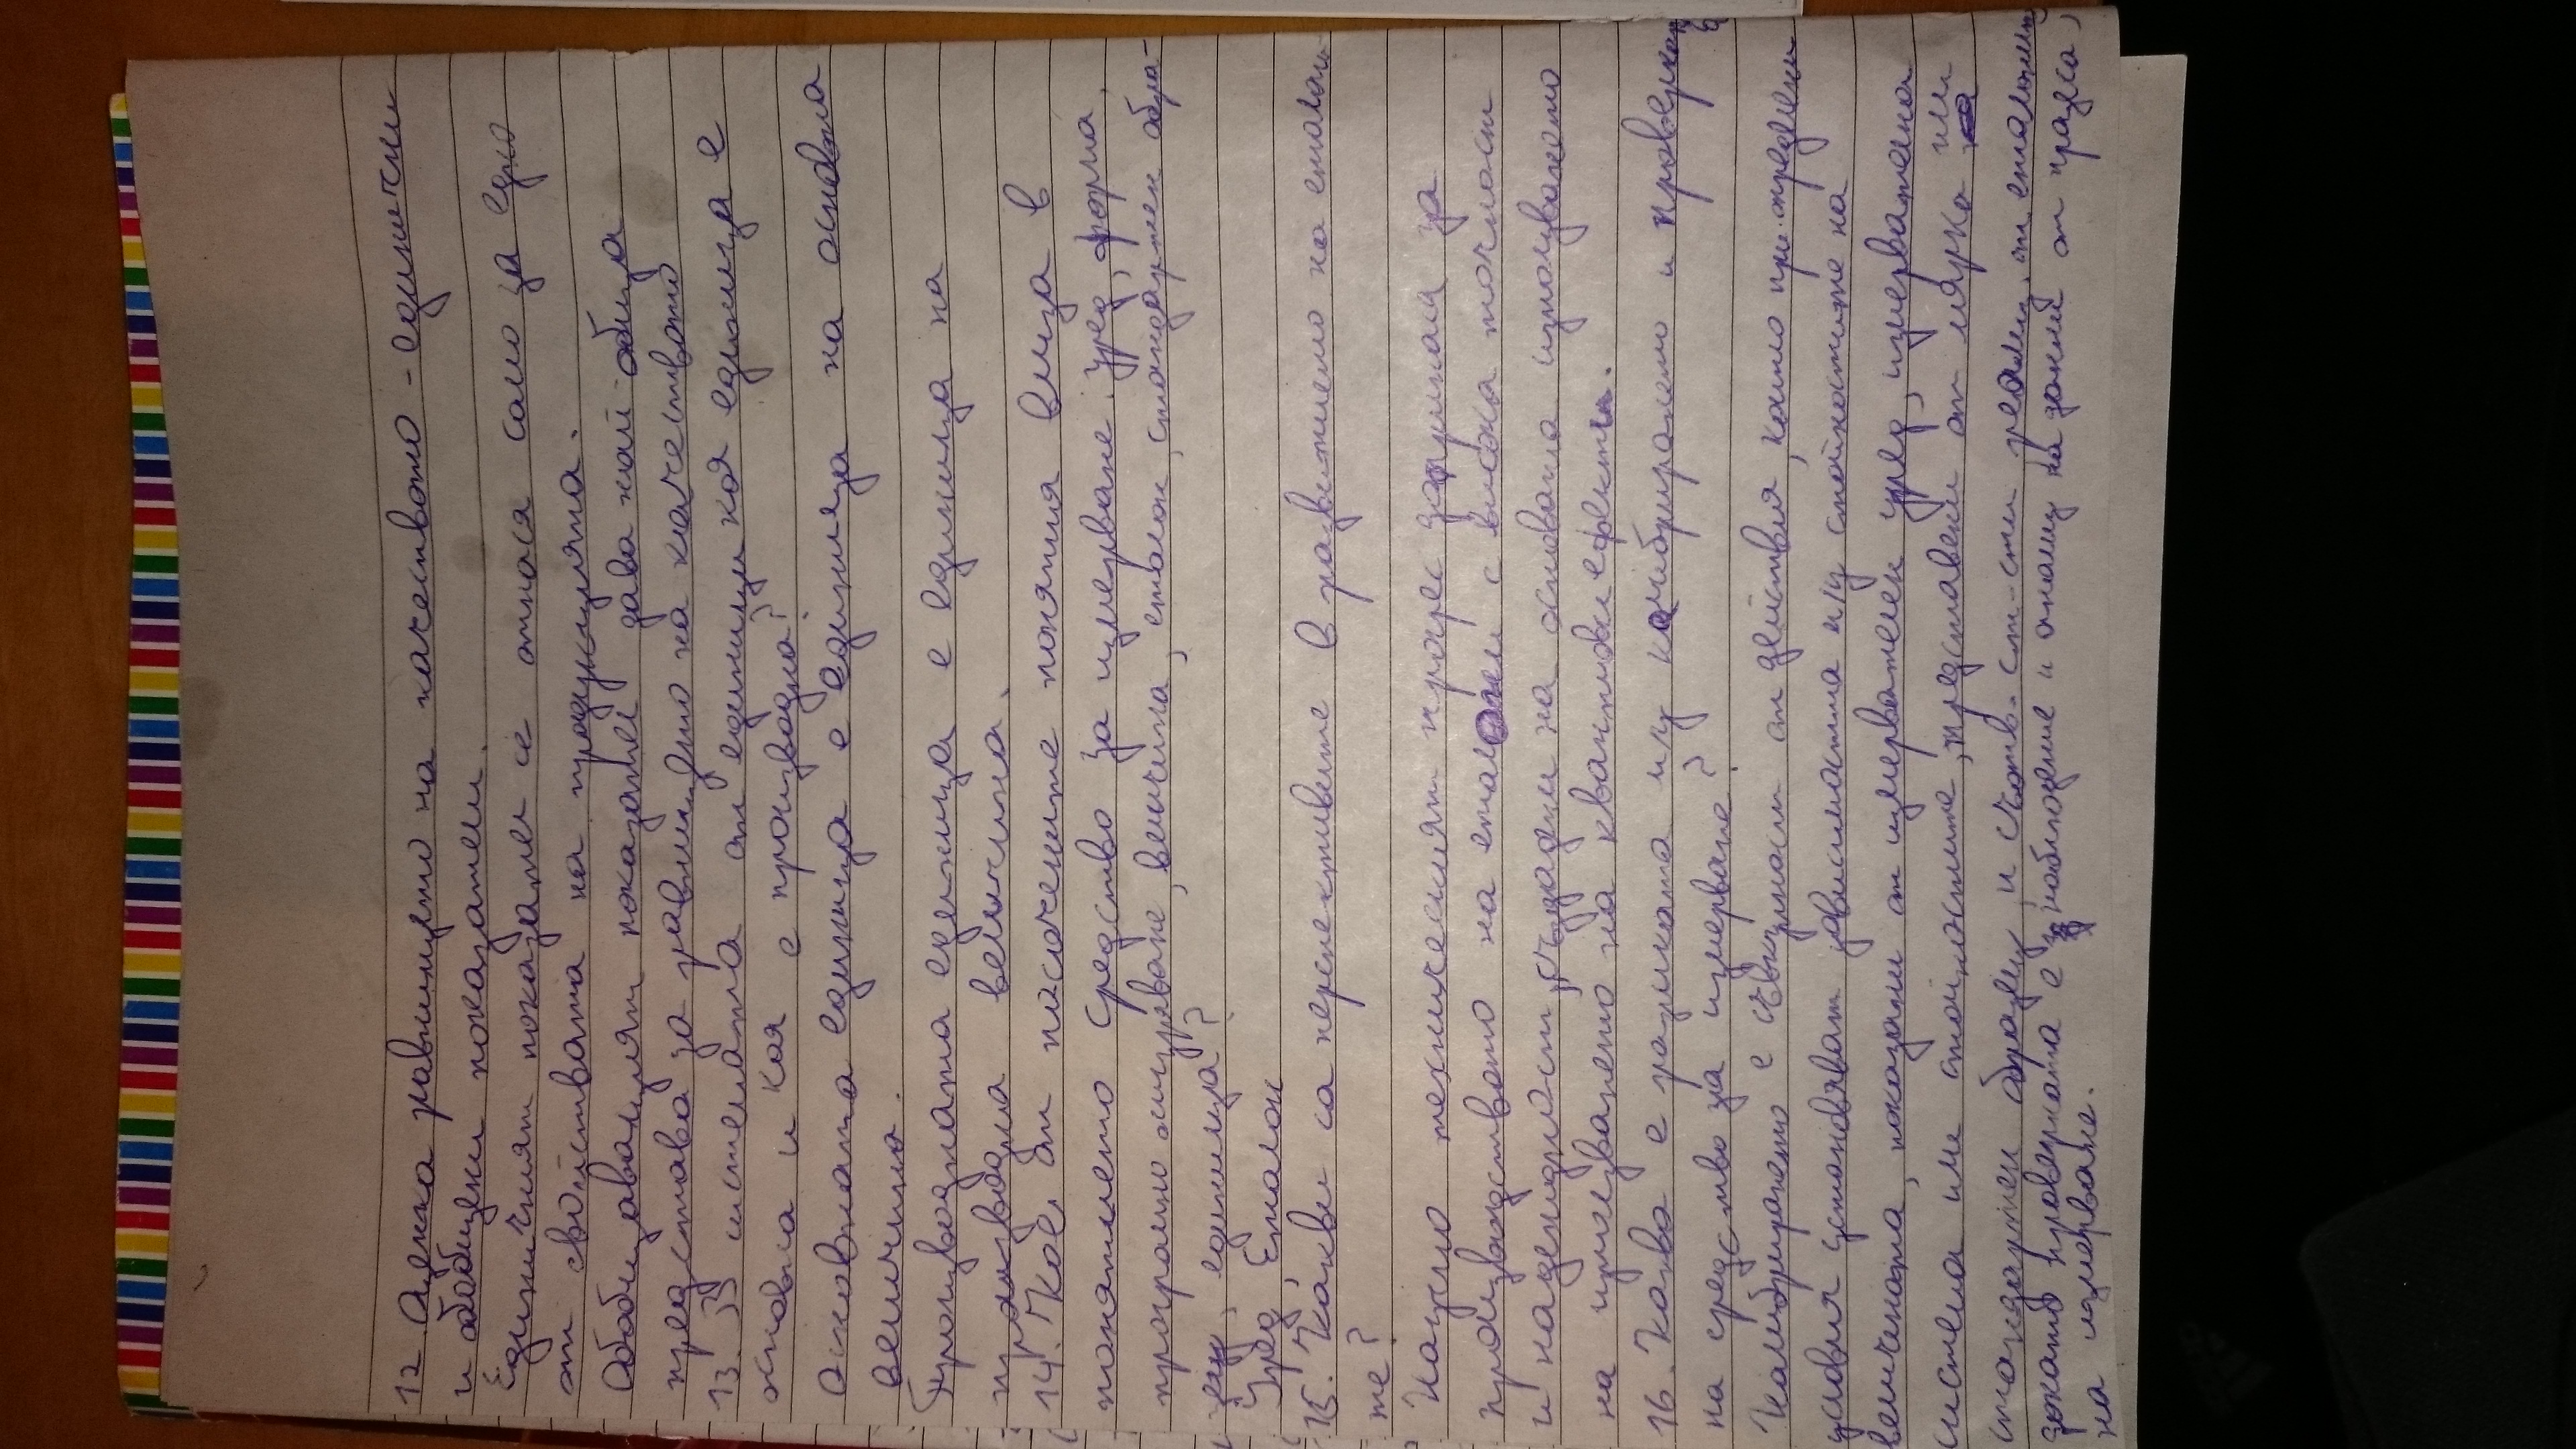 12 Оценка равнището на качеството - единични
и обобщени показатели.
Единичният показател се отнася само за едно
от свойствата на продукцията.
Обобщаващият показател дава най-обща
представа за равнището на качеството
13. В системата от единици коя единица е
основна и коя е производна?
Основната единица е единица на основна
величина.
Производната единица е единица на
производна величина.
14. Кое от посочените понятия влиза в
понятието средство за измерване: уред, форма,
програмно осигуряване, величина, еталон, стандартен обра-
зец, единица?
Уред, Еталон
15. Какви са перспективите в развитието на еталони-
те?
Научно техническият прогрес допринася за
производството на еталони с висока точност
и надеждност, създадени на основата използването
на използването на квантови ефекти.
16. Каква е разликата м/у калибрирането и проверката
на средство за измерване?
Калибрирането е съвкупност от действия, които при определени
условия установяват зависимостта м/у стойностите на
величината, показани от измервателен уред, измервателна
система или стойностите, представени от мярка или
стандартен образец, и съотв. ст-сти реализ. от еталоните,
докато проверката е наблюдение и анализ на данни от процеса
на измерване.